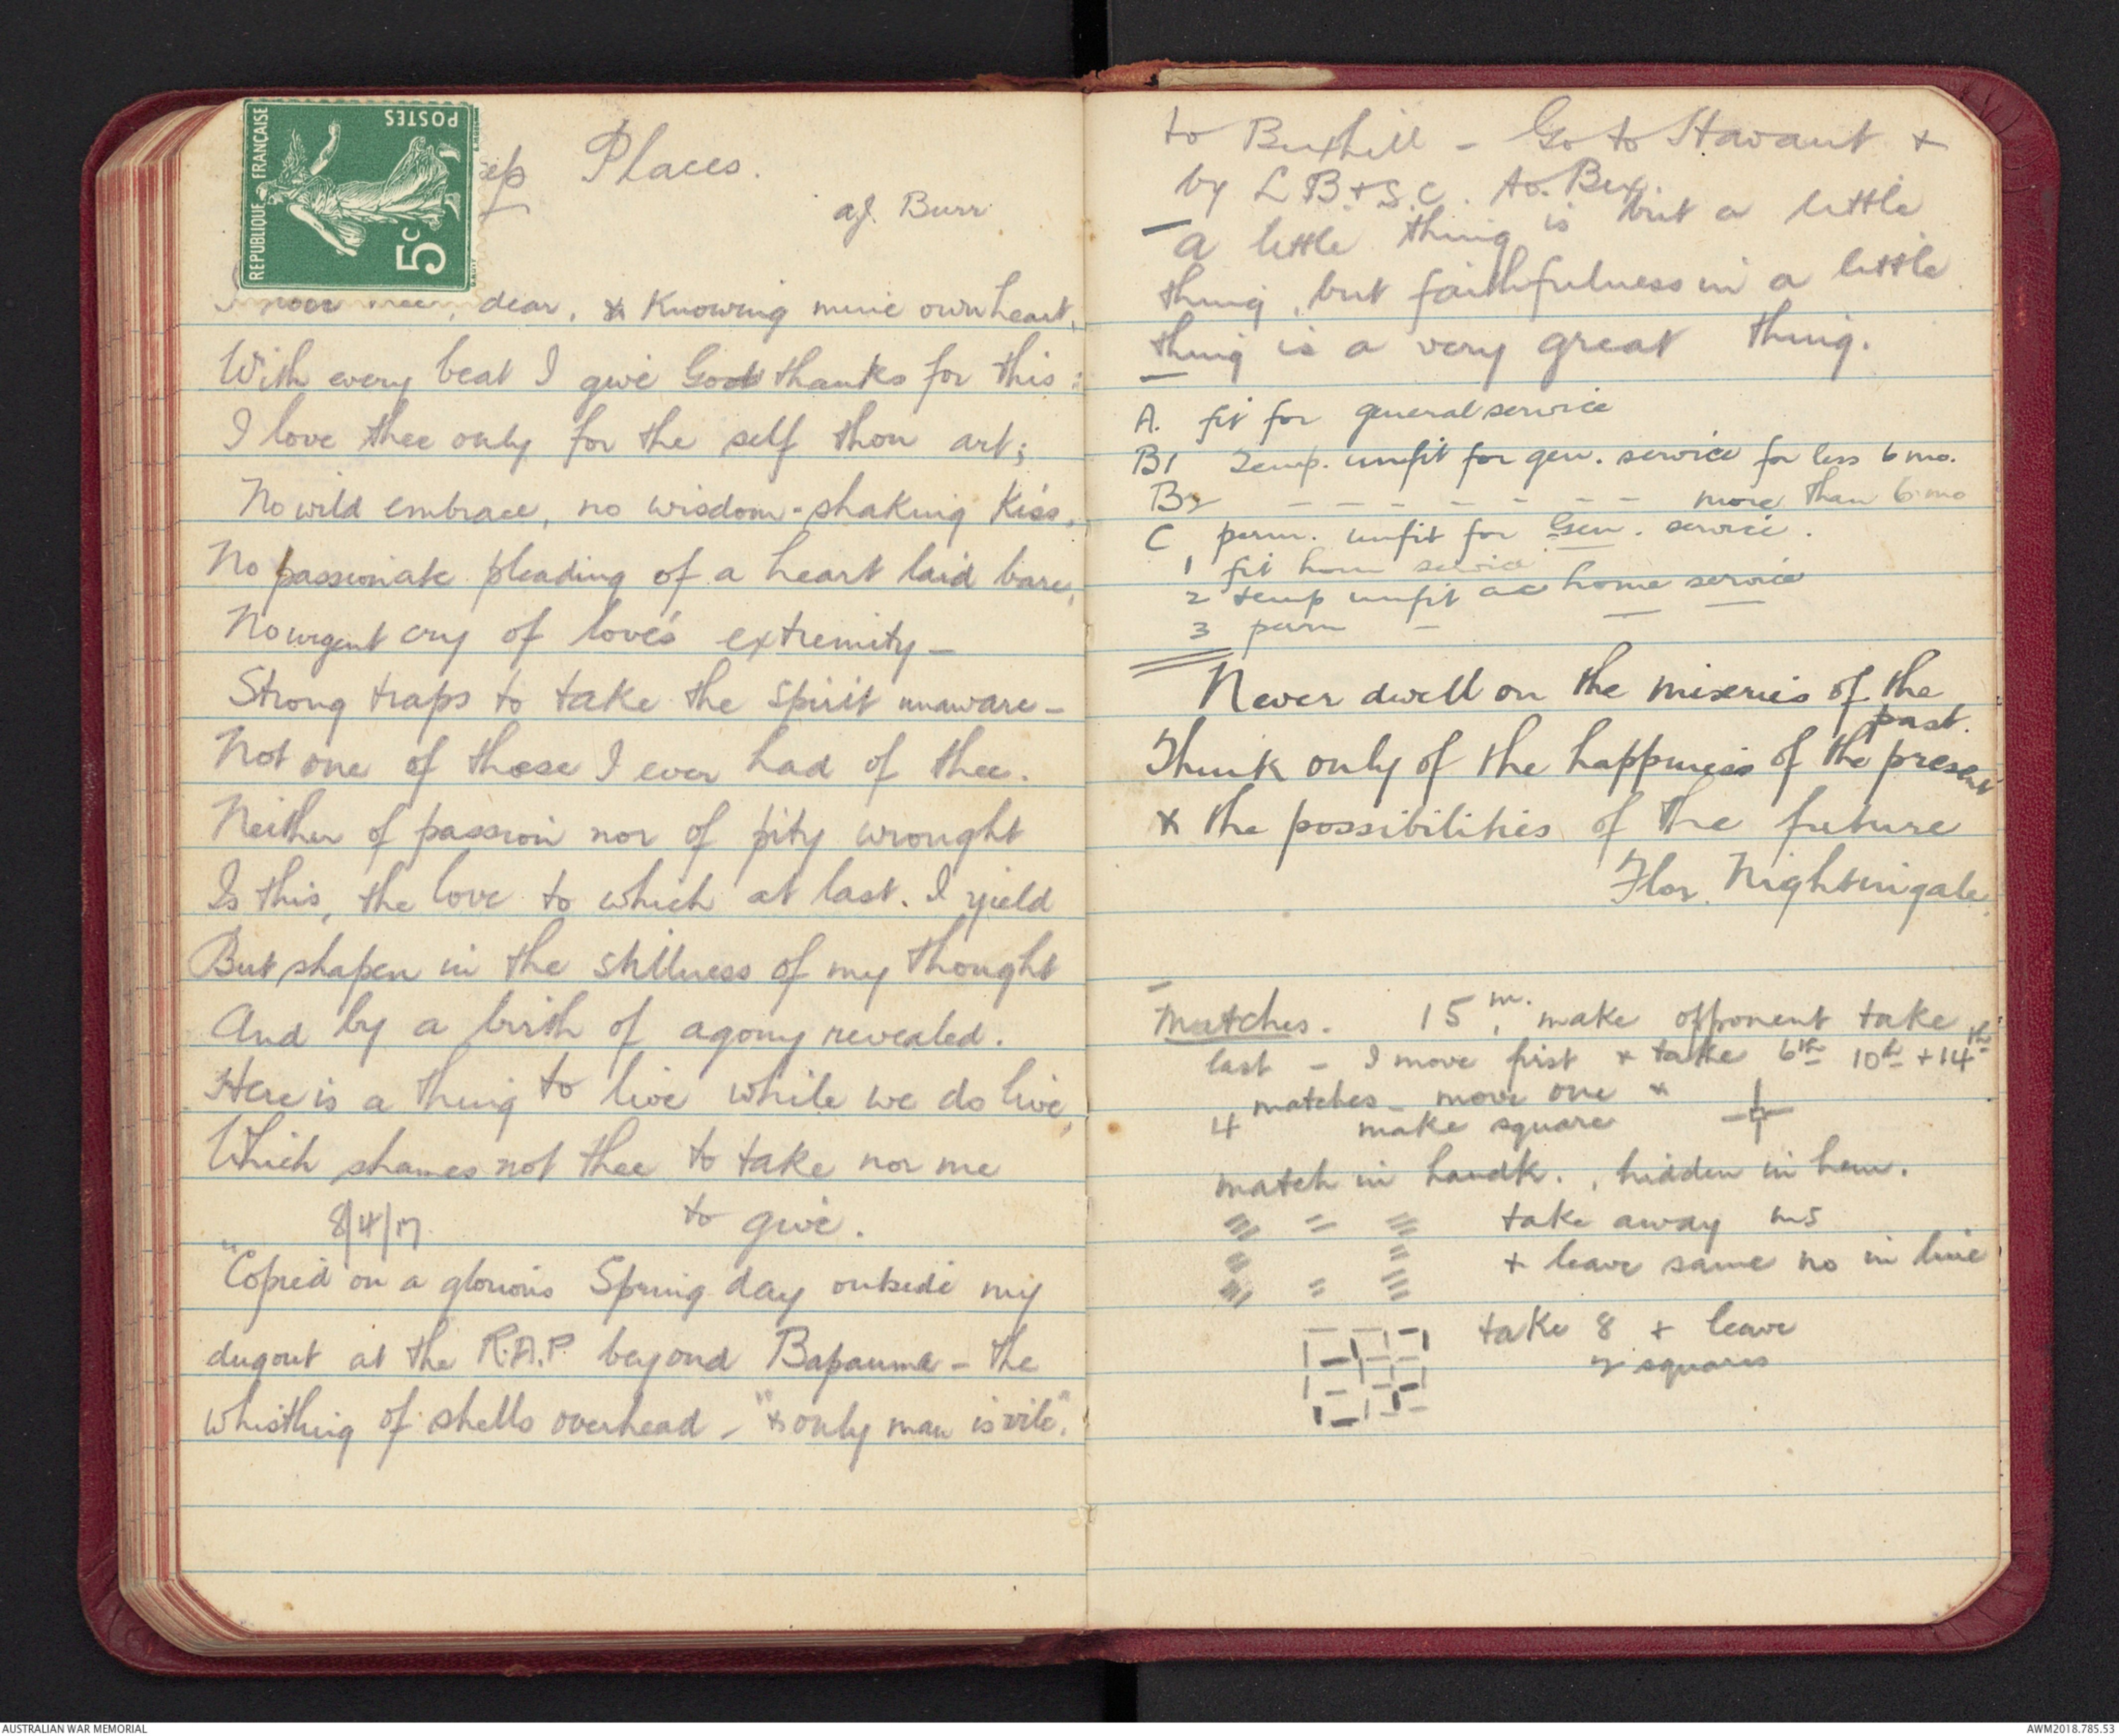 REPUBLIQUE FRANÇAISE
POSTES
5c
Places.
A.J. Burr
dear, & Knowing mine own heart,
With every beat I give God thanks for this:
I love thee only for the self thou art;
No wild embrace, no wisdom-shaking kiss,
No passionate pleading of a heart laid bare,
No urgent cry of love's extremity —
Strong traps to take the spirit unaware —
Not one of these I ever had of thee.
Neither of passion nor of pity wrought
Is this, the love to which at last. I yield
But shapen in the stillness of my thought
And by a birth of agony revealed.
Here is a thing to live while we do live,
Which shames not thee to take nor me
to give.
8/4/17
"Copied on a glorious Spring day outside my
dugout at the R.A.P. beyond Bapaume - the
whistling of shells overhead - "& only man is vile".
to Bexhill - Go to Havant +
by L B. & S.C. to. Bex.
a little thing is but a little
thing, but faithfulness in a little
thing is a very great thing.
A. fit for general service
B1 Temp. unfit for gen. service for less 6 mo.
B2 - - - - - - - more than 6 mo
C perm. unfit for Gen. service.
1 fit home service
2 temp unfit home service
3 perm - - -
Never dwell on the miseries of the
past.
Think only of the happiness of the present
& the possibilities of the future
Flor. Nightingale.
Matches. 15 m. make opponent take
last - I move first & take 6th 10th + 14th
4 matches - move one &
make square
match in handk., hidden in hem.
take away
+ leave same no in line
take 8 + leave
2 squares
AUSTRALIAN WAR MEMORIAL
AWM2018.785.53